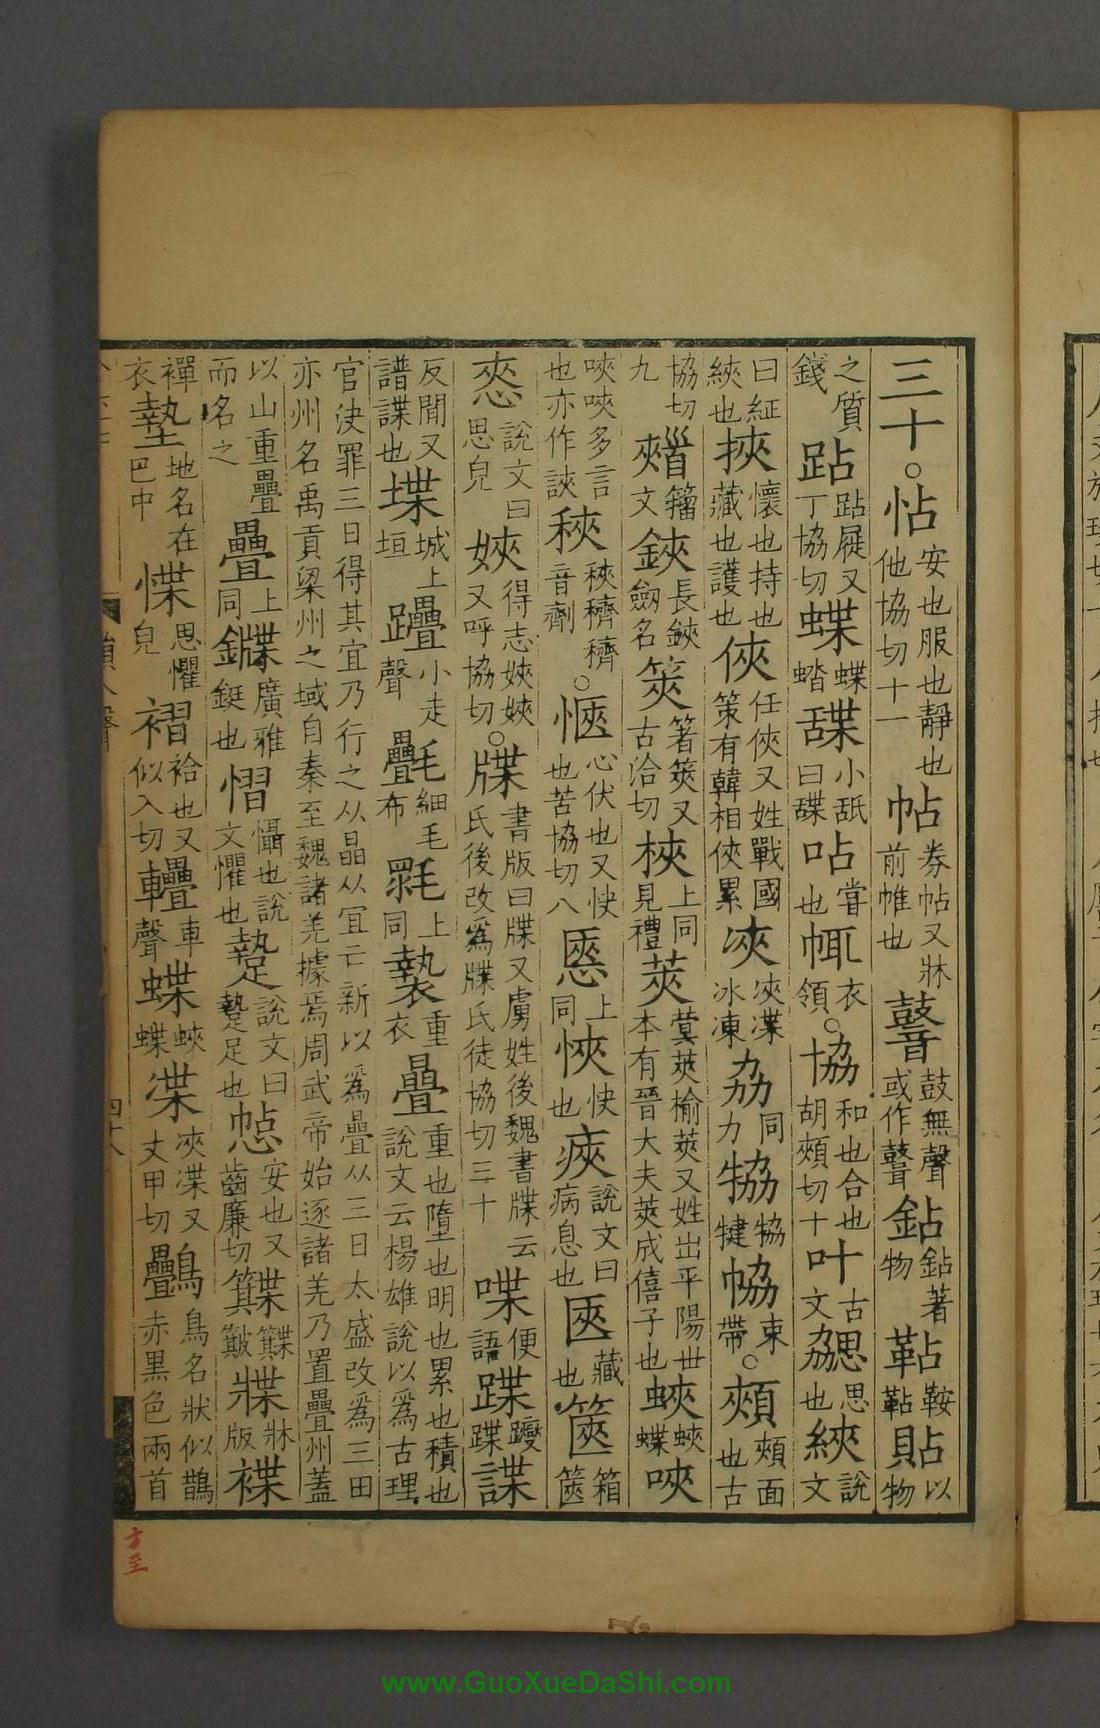 三十。怗安也服也靜也他協切十一帖券帖又牀前帷也鼓無聲或作鉆鉆著物鞊鞍鞊貼以物
之質錢跕跕屣又丁協切蝶蝶蹹小舐曰呫嘗也㡇衣領。協和也合也胡頰切十叶古文勰思也綊說文
曰紝綊也挾懷也持也藏也護也俠任俠又姓戰國策有韓相俠累浹浹渫冰凍劦同力犍束帶。頰頰面也古
協切九籀文鋏長鋏劒名筴箸筴又古洽切梜上同見禮莢蓂莢榆莢又姓出平陽丗本有晉大夫莢成僖子也蛺蛺蝶唊
唊唊多言也亦作穧穧音劑。愜心伏也又快也苦協切八上同快也說文曰病息也匧藏也篋箱篋
說文曰思皃得志又呼協切。牒書版曰牒又虜姓後魏書牒云氏後改為牒氏徒協切三十喋便語蹀躞蹀諜
反閒又譜諜也堞城上垣小走聲氎細毛布上同褺重衣疊重也墮也明也累也積也說文云楊雄說以為古理
官決罪三日得其宜乃行之从晶从冝亡新以為疊从三日太盛改為三田
亦州名禹貢梁州之域自秦至魏諸羌據焉周武帝始逐諸羌乃置疊州蓋
以山重疊而名之上同鍱廣雅鋌也慴懾也說文懼也說文曰足也惉安也又齒廉切牀版褋
襌衣墊地名在巴中惵思懼皃褶袷也又似入切車聲蝶蛺蝶渫浹渫又丈甲切鳥名狀似鵲赤黑色兩首
四十八
www.GuoXueDaShi.com